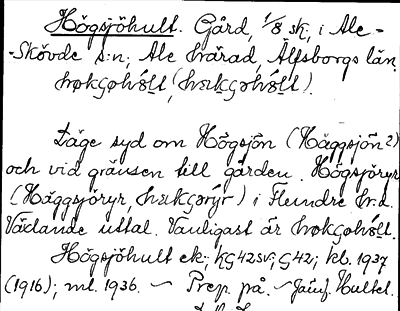 Högsjöhult. Gård, 1/8 sk, i Ale-
-Skövde s:n, Ale härad, Älfsborgs län.
Läge syd om Högsjön (Häggsjön?)
och vid gränsen till gården Högsjöryr
(Häggsjöryr, ) i Flundre hr.d.
Växlande uttal. Vanligast är
Högsjöhult ek; KG42sv; G42; kb. 1937
(1916); ml. 1936. – Prep. på. – Jämf. Hultet.